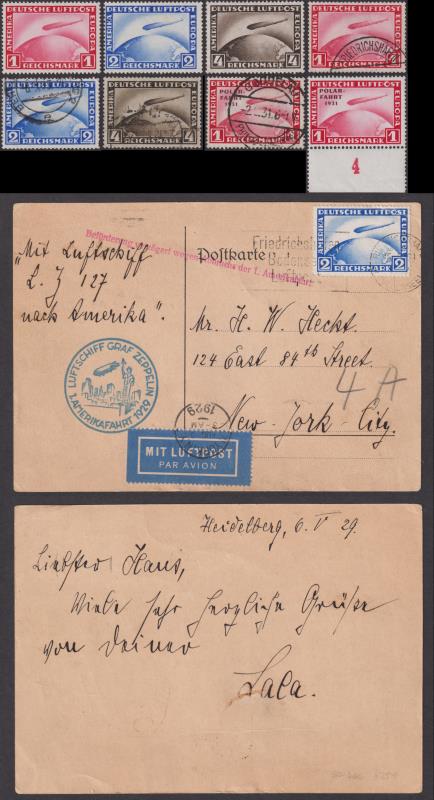 DEUTSCHE LUFTPOST
AMERIKA EUROPA
1 REICHSMARK 1
DEUTSCHE LUFTPOST
AMERIKA EUROPA
2 REICHSMARK 2
DEUTSCHE LUFTPOST
AMERIKA EUROPA
4 REICHSMARK 4
DEUTSCHE LUFTPOST
AMERIKA EUROPA
1 REICHSMARK
FRIEDRICHSHAFEN
DEUTSCHE LUFTPOST
AMERIKA EUROPA
2 REICHSMARK 2
DEUTSCHE LUFTPOST
AMERIKA EUROPA
4 REICHSMARK 4
DEUTSCHE LUFTPOST
AMERIKA EUROPA
POLAR-
FAHRT
1931
1 REICHSMARK 1
DEUTSCHE LUFTPOST
AMERIKA EUROPA
POLAR-
FAHRT
1931
1 REICHSMARK 1
4
Beförderung verzögert wegen Abbruchs der 1. Amerikafahrt
Postkarte
Friedrichshafen
Bodensee
DEUTSCHE LUFTPOST
AMERIKA EUROPA
2 REICHSMARK 2
„Mit Luftschiff
L. Z 127
nach Amerika".
Mr. H. W. Heckt
124 East 84th Street.
4 A
New-York-City.
LUFTSCHIFF GRAF ZEPPELIN
1. AMERIKAFAHRT 1929
1929
MIT LUFTPOST
PAR AVION
Heidelberg, 6. V 29.
Liebster Hans,
Viele sehr herzliche Grüße
von Deiner
Lala.